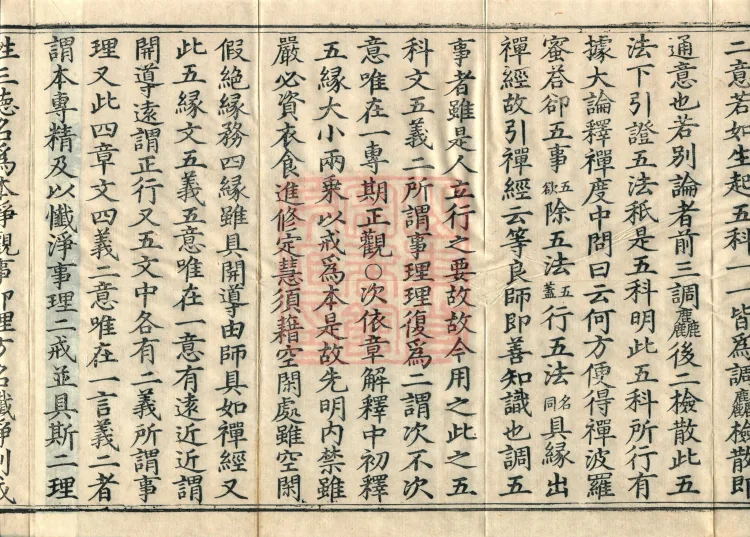 二意若如生起五科一一皆爲調麤檢散即
通意也若別論者前三調麤後二檢散此五
法下引證五法秖是五科明此五科所行有
據大論釋禪度中問曰云何方便得禪波羅
蜜荅卻五事五欲除五法五蓋行五法名同具縁出
禪經故引禪經云等良師即善知識也調五
事者雖是人立行之要故故今用之此之五
科文五義二所謂事理理復爲二謂次不次
意唯在一專期正觀○次依章解釋中初釋
五縁大小兩乗以戒爲本是故先明内禁雖
嚴必資衣食進修定慧須藉空閑處雖空閑
假絶縁務四縁雖具開導由師具如禪經又
此五縁文五義五意唯在一意有遠近近謂
開導遠謂正行又五文中各有二義所謂事
理又此四章文四義二意唯在一言義二者
謂本專精及以懺淨事理二戒並具斯二理
性三德名爲本淨觀事即理方名懺淨則戒